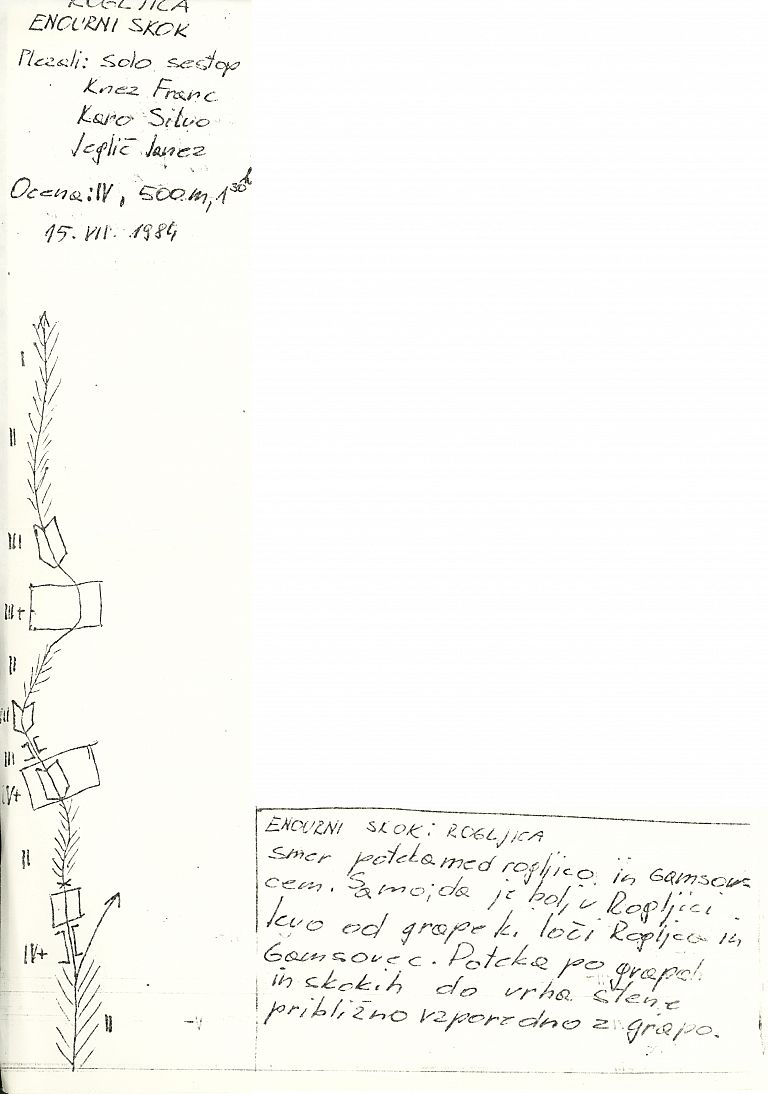 ROGLJICA
ENOURNI SKOK
Plezali: solo sestop
Knez Franc
Karo Silvo
Jeglič Janez
Ocena: IV, 500 m, 1 30 h
15. VII. 1984
I
II
III
III+
II
III
III
IV+
II
IV+
II
-V
ENOURNI SKOK: ROGLJICA
Smer poteka med rogljico in Gamsov-
cem. Samo, da je bolj v Rogljici
levo od grape ki loči Rogljico in
Gamsovec. Poteka po grapah
in skokih do vrha stene
približno vzporedno z grapo.